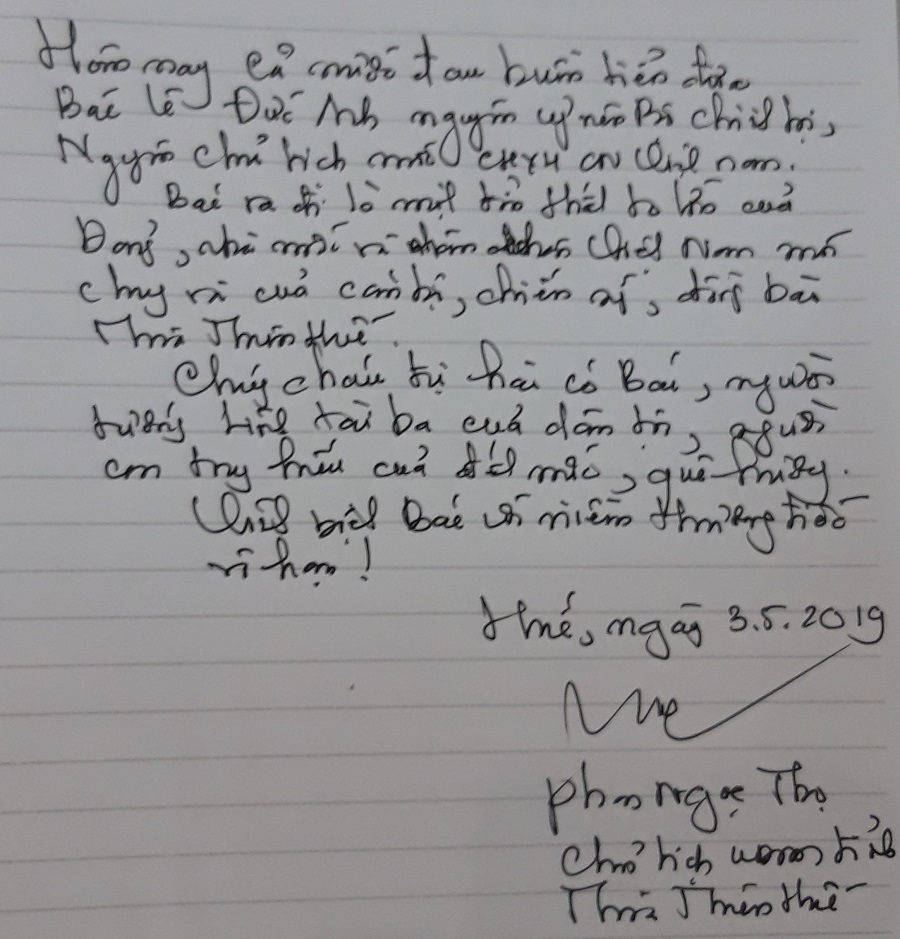 Hôm nay cả nước đau buồn tiễn đưa
Bác Lê Đức Anh nguyên uỷ viên Bộ Chính trị,
Nguyên Chủ tịch nước CHXHCN Việt Nam.
Bác ra đi là một tổn thất to lớn của
Đảng, nhà nước và nhân dân Việt Nam nói
chung và của cán bộ, chiến sĩ, đồng bào
Thừa Thiên Huế.
Chúng cháu tự hào có Bác, người
tướng lĩnh tài ba của dân tộc, người
con trung hiếu của đất nước, quê hương.
Vĩnh biệt Bác với niềm thương tiếc
vô hạn!
Huế, ngày 3.5.2019
Phan Ngọc Thọ
Chủ tịch UBND tỉnh
Thừa Thiên Huế